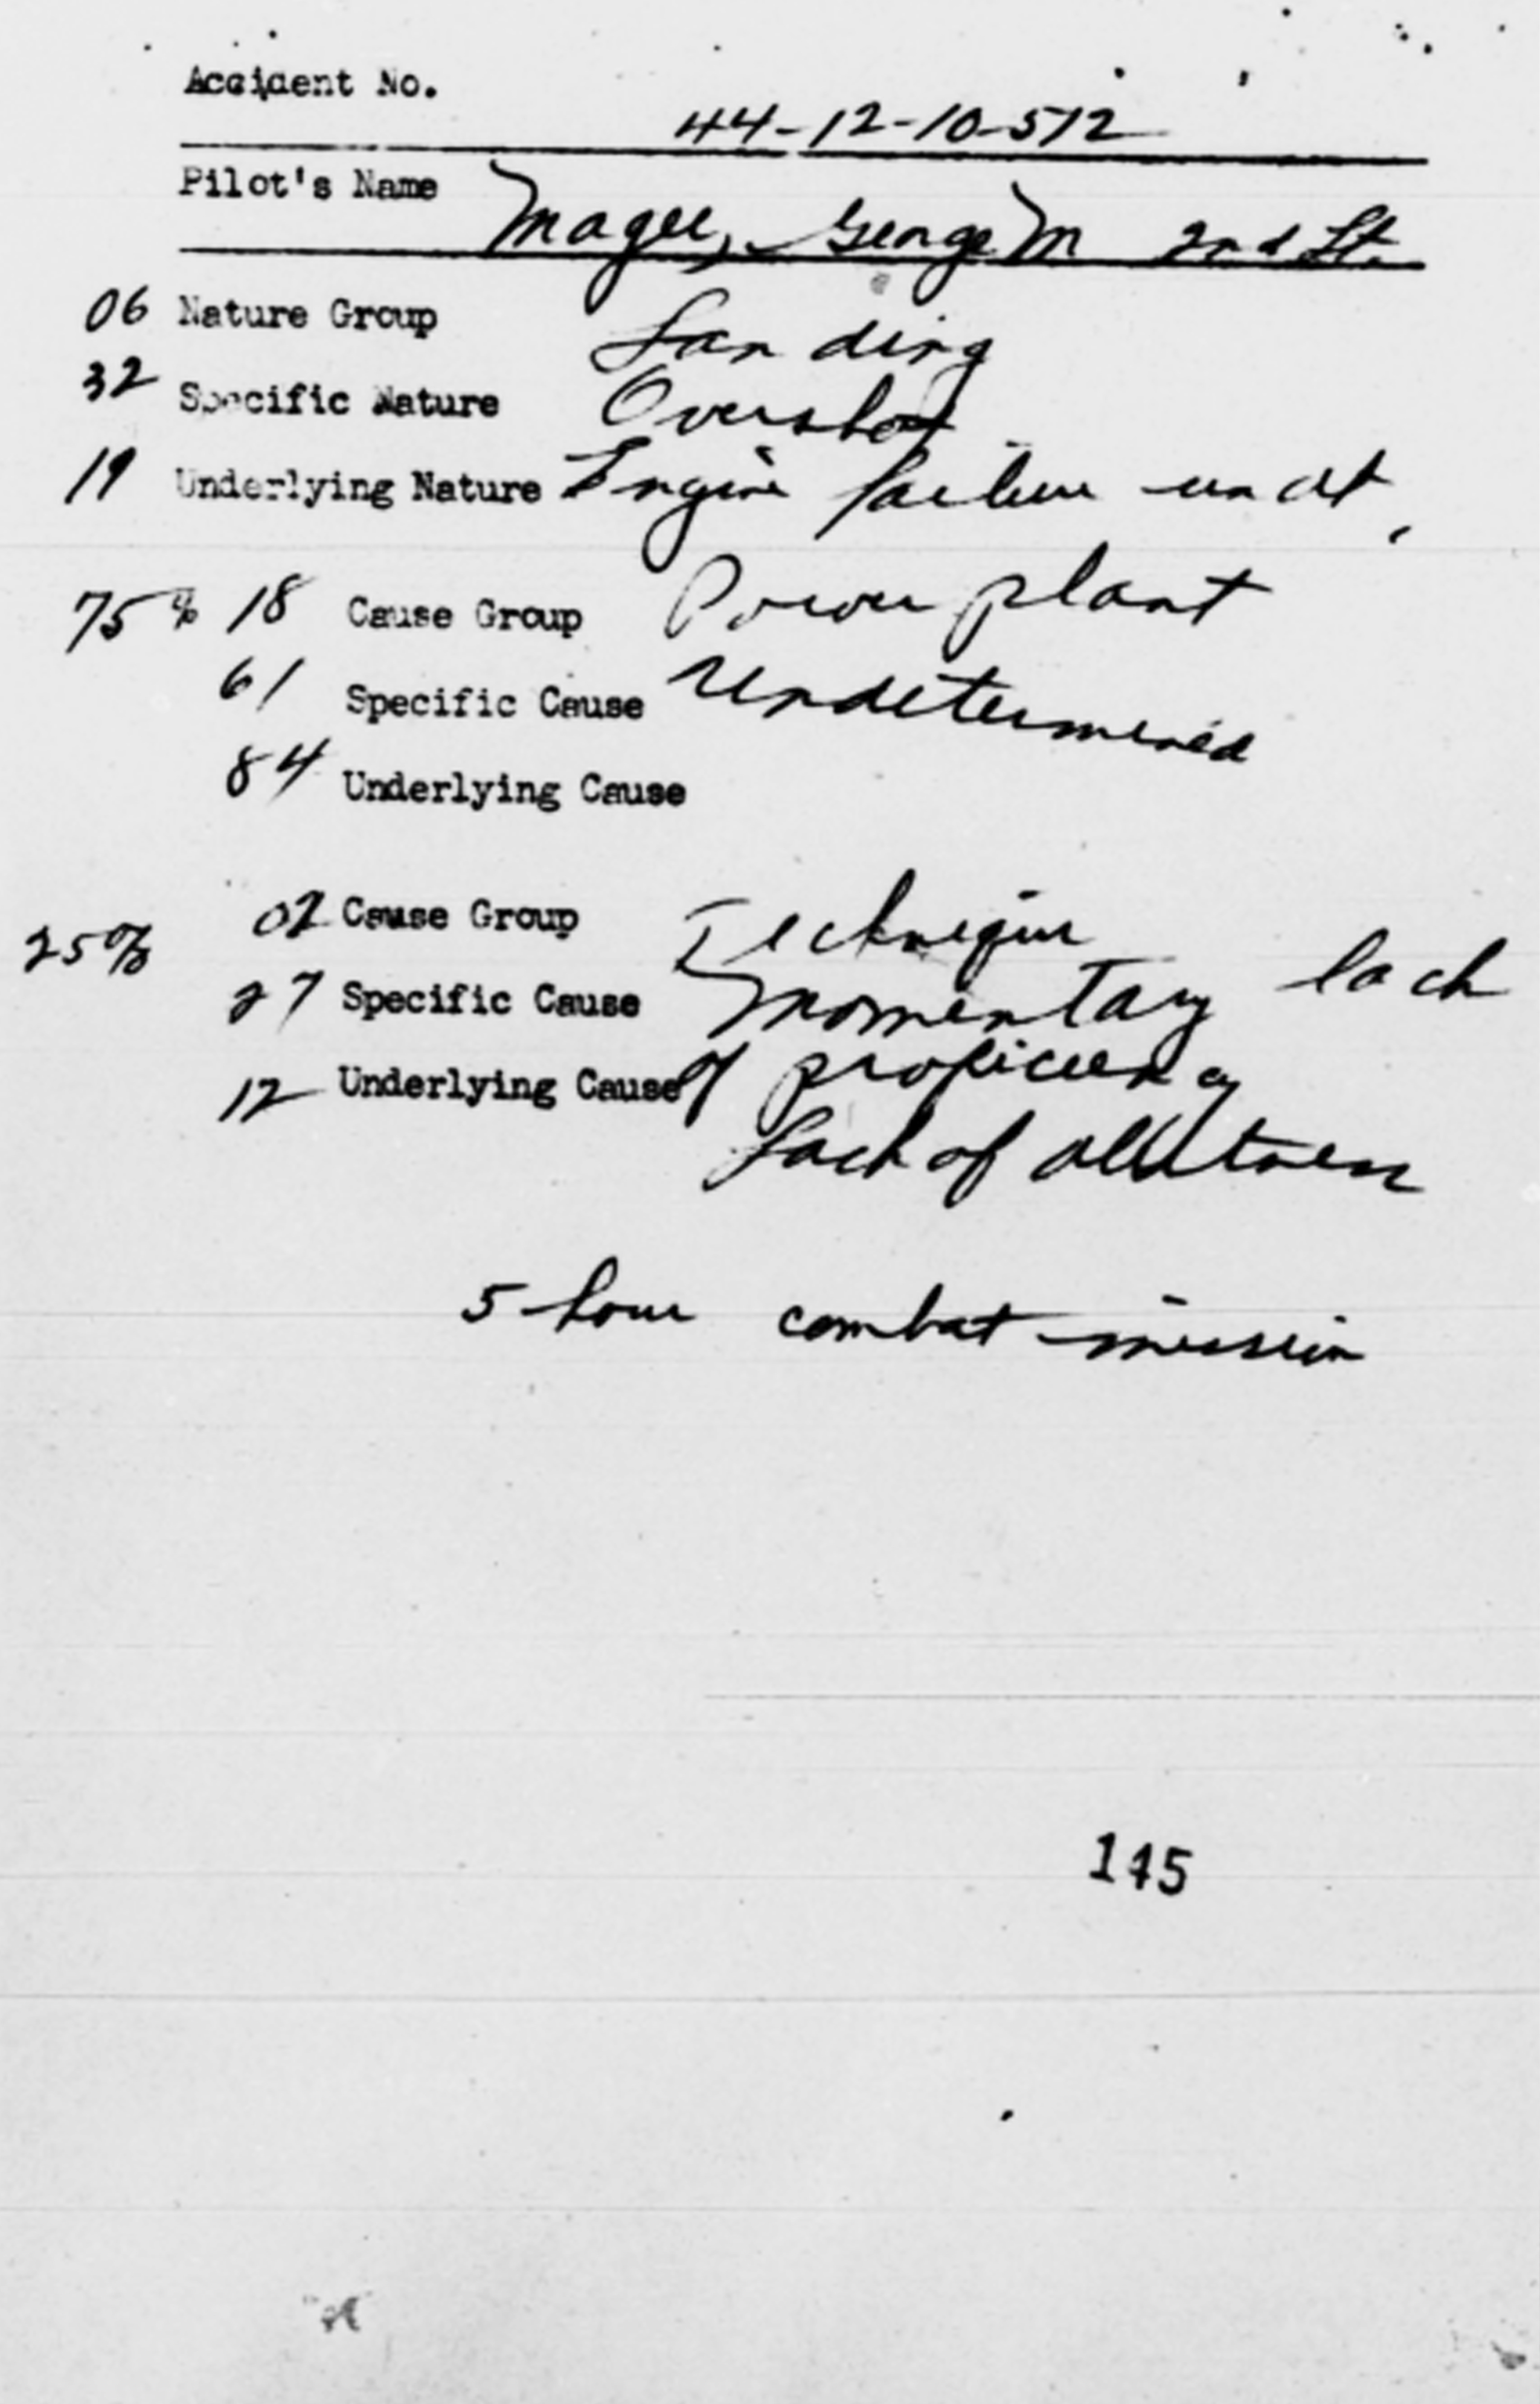 Accident No. 44-12-10-512
Pilot's Name Magee, George M 2nd Lt.
06 Nature Group Landing
32 Specific Nature Overshot
19 Underlying Nature Engine failure undt,
75% 18 Cause Group Power plant
61 Specific Cause Undetermined
84 Underlying Cause
25% 02 Cause Group Technique
27 Specific Cause Momentary lack
12 Underlying Cause of proficiency
Lack of alertness
5 hour combat mission
145